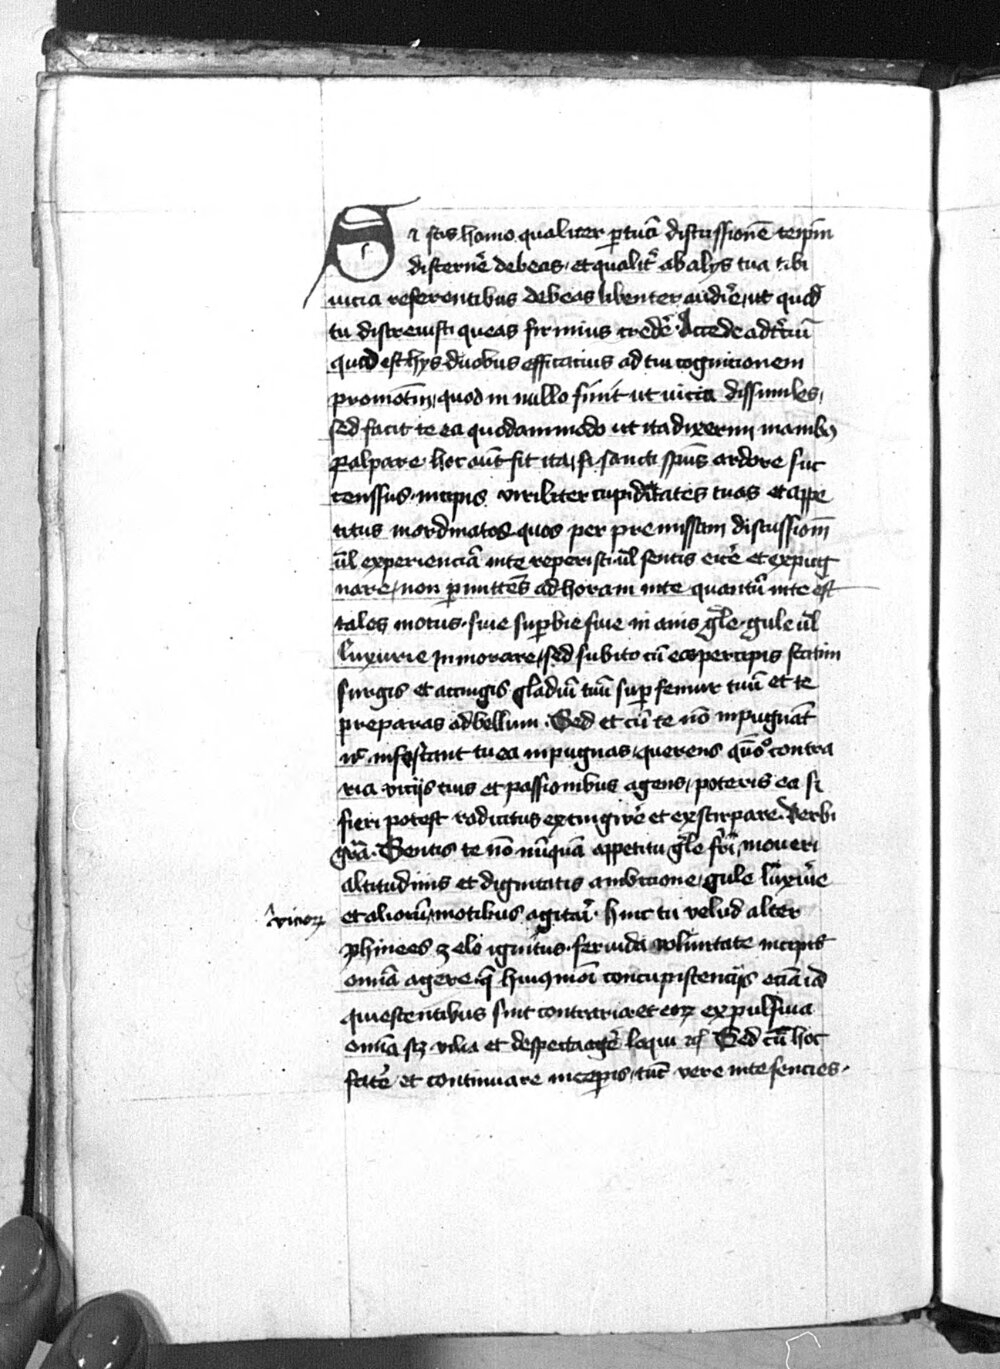 Si scis homo qualiter p tuā discussionē teip̄m
discernē debeas, et qualit᷑ ab alys tua tibi
vicia referentibus debeas libenter audīe, ut quod
tu discrevisti queas firmius credē. Accede ad t᷑ciū
quod est hys duobus efficacius ad tui cognicionem
promotīn, quod in nullo sinit ut vicia dissimiles,
sed facit te ea quodammodo ut ita dixerim manibꝫ
palpare. hoc aūt fit ita, si sancti spūs ardore suc
censsus incipis viriliter cupiditates tuas et appe
titus inordinatos quos per premissam discussionē
ūl experienciā in te reperisti ūl sentis eicē et expug
nare, non p̱mittēs ad horam in te quantū in te est
tales motus, sive sup̱bie sive inanis gl̄e, gule ūl
luxurie inmorare, sed subito cū eos percipis statim
surgis et accingis gladiū tuū sup̱ femur tuū et te
preparas ad bellum. Sed et cū te nō inpugnāt
nc̄ infestant tu ea inpugnas, querens quō contra
ria viciis tuis et passionibus agens, poteris ea si
fieri potest radicitus extingwē et exstirpare. Verbi
grā. Sentis te nō nūquā appetitu gl̄e moveri
altitudinis et dignitatis ambicione, gule luxurie
et aliorū ⸌vicioꝝ⸍ motibus agitāi. hinc tu velud alter
phinees zelo ignitus fervida volūntate incipis
omīa agere, q̄ huiꝰmōi concupiscenciis eciā iā
quiescentibus sint contraria et eoꝝ expulsiva
omīa scꝫ vilia et despecta agē loqui ⁊c̄ Sed cū hoc
facē et continuare incep̱is, tūc vere in te sencies.